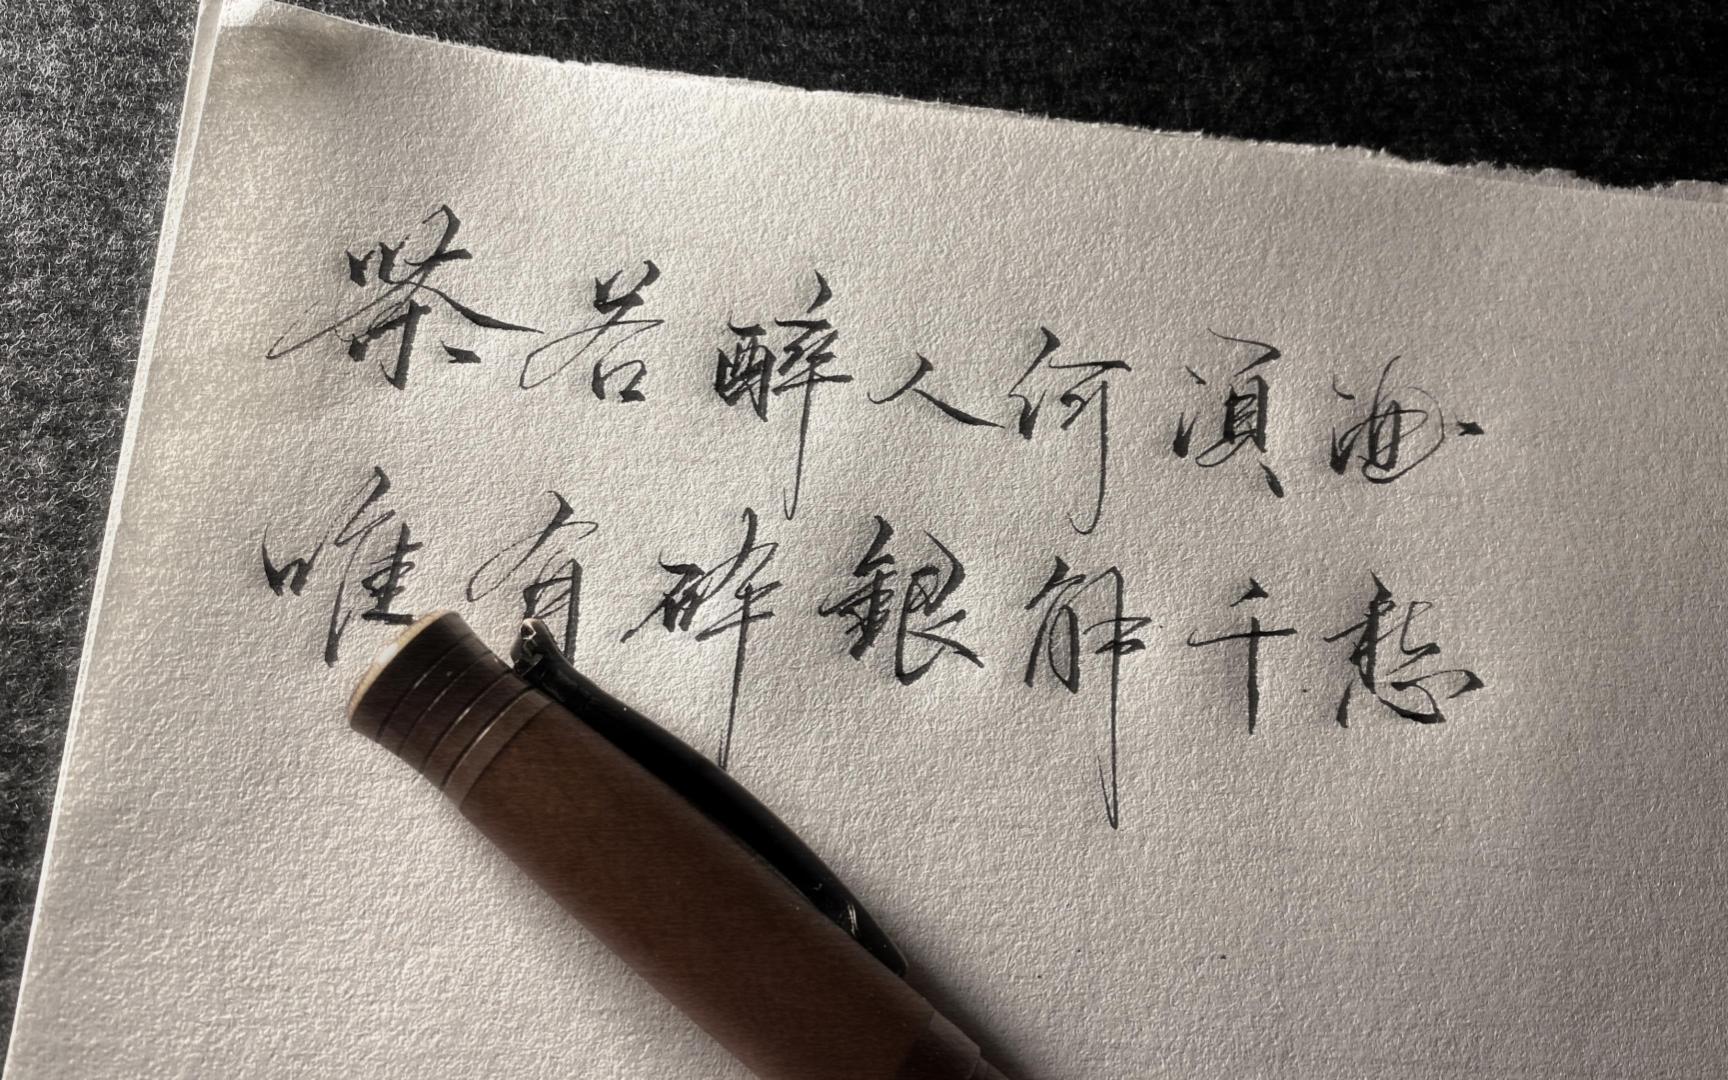 茶若醉人何須酒
唯有碎銀解千愁